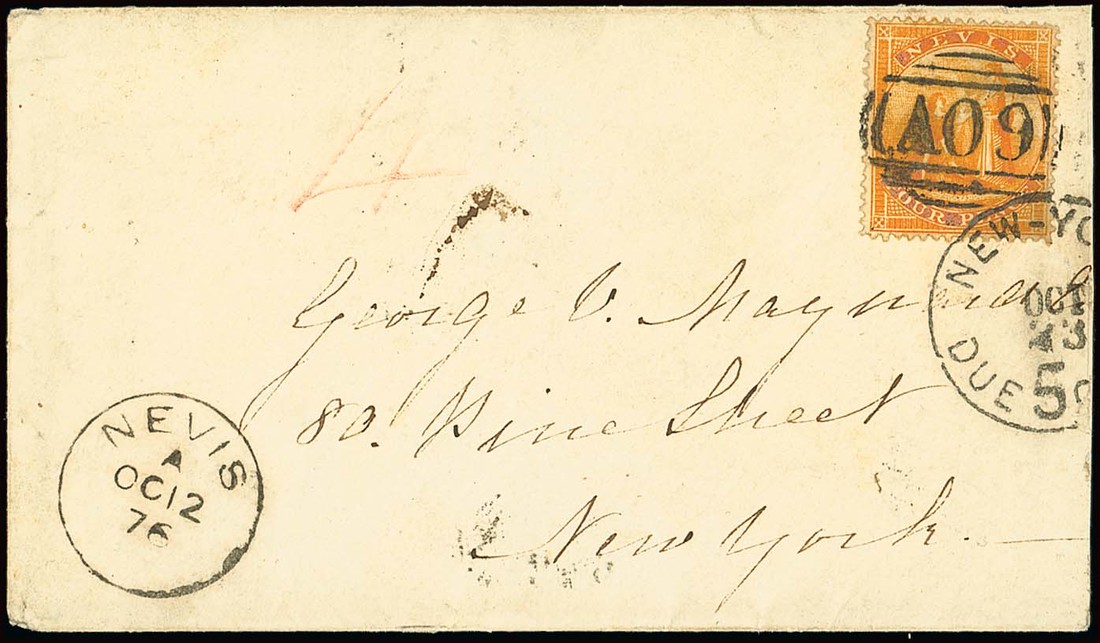 NEVIS
A09
OUR P
4
NEW-YO
OCT
23
DUE 5
George V. Maynard
80. Pine Street
New York.
NEVIS
A
OC 12
76